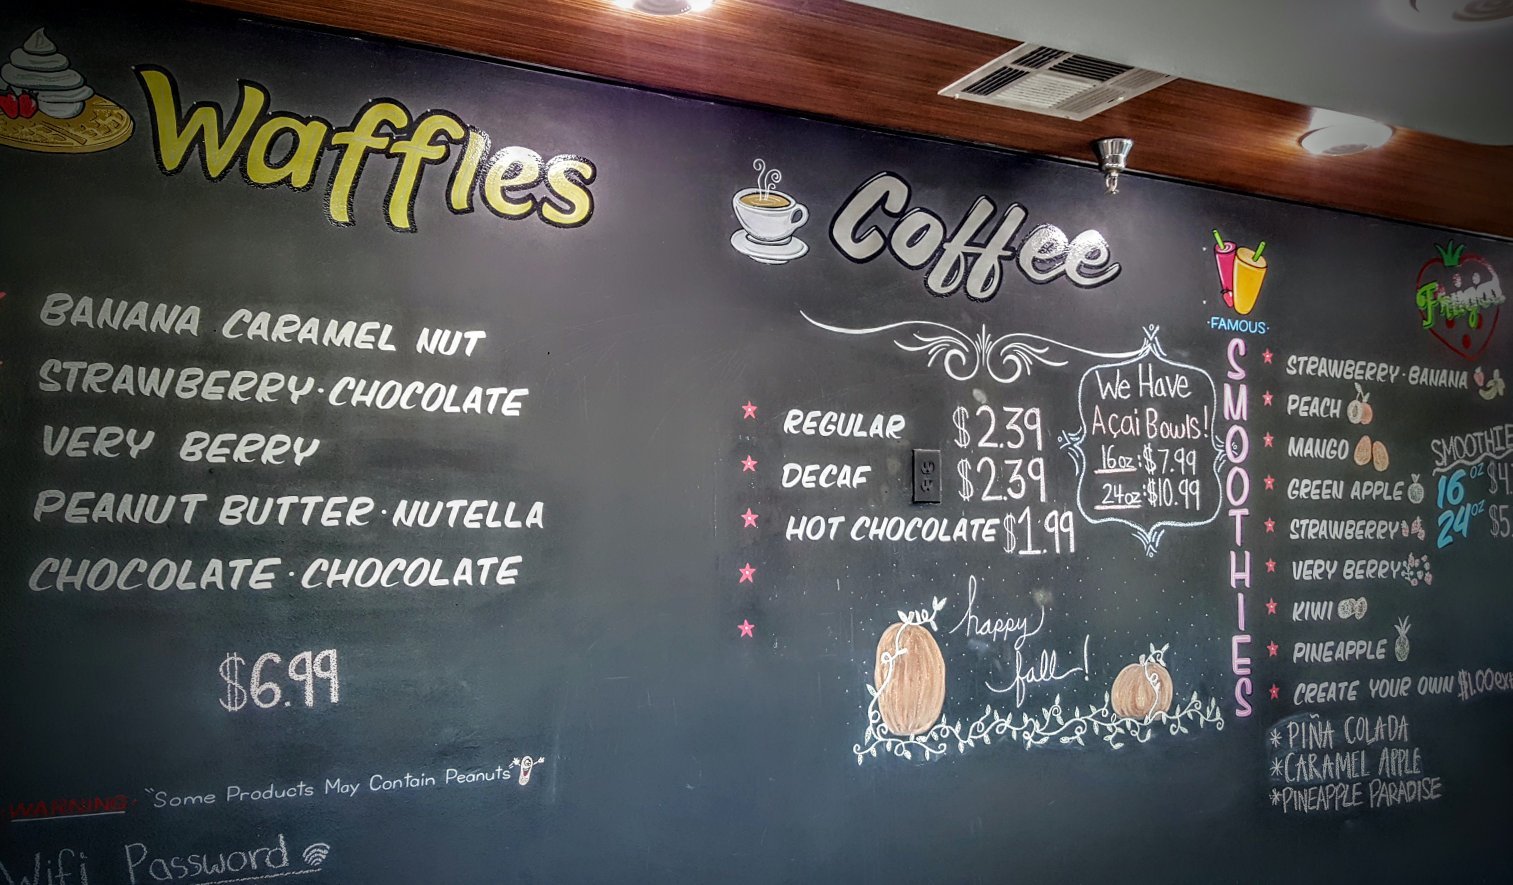 Waffles
BANANA CARAMEL NUT
STRAWBERRY·CHOCOLATE
VERY BERRY
PEANUT BUTTER·NUTELLA
CHOCOLATE·CHOCOLATE
$6.99
WARNING: "Some Products May Contain Peanuts"
Wifi Password
Coffee
REGULAR $2.39
DECAF $2.39
HOT CHOCOLATE $1.99
We Have
Açai Bowls!
16oz:$7.99
24oz:$10.99
happy
fall!
·FAMOUS·
SMOOTHIES
STRAWBERRY·BANANA
PEACH
MANGO
GREEN APPLE
STRAWBERRY
VERY BERRY
KIWI
PINEAPPLE
CREATE YOUR OWN $1.00
*PIÑA COLADA
*CARAMEL APPLE
*PINEAPPLE PARADISE
SMOOTHIE
16 oz
24 oz